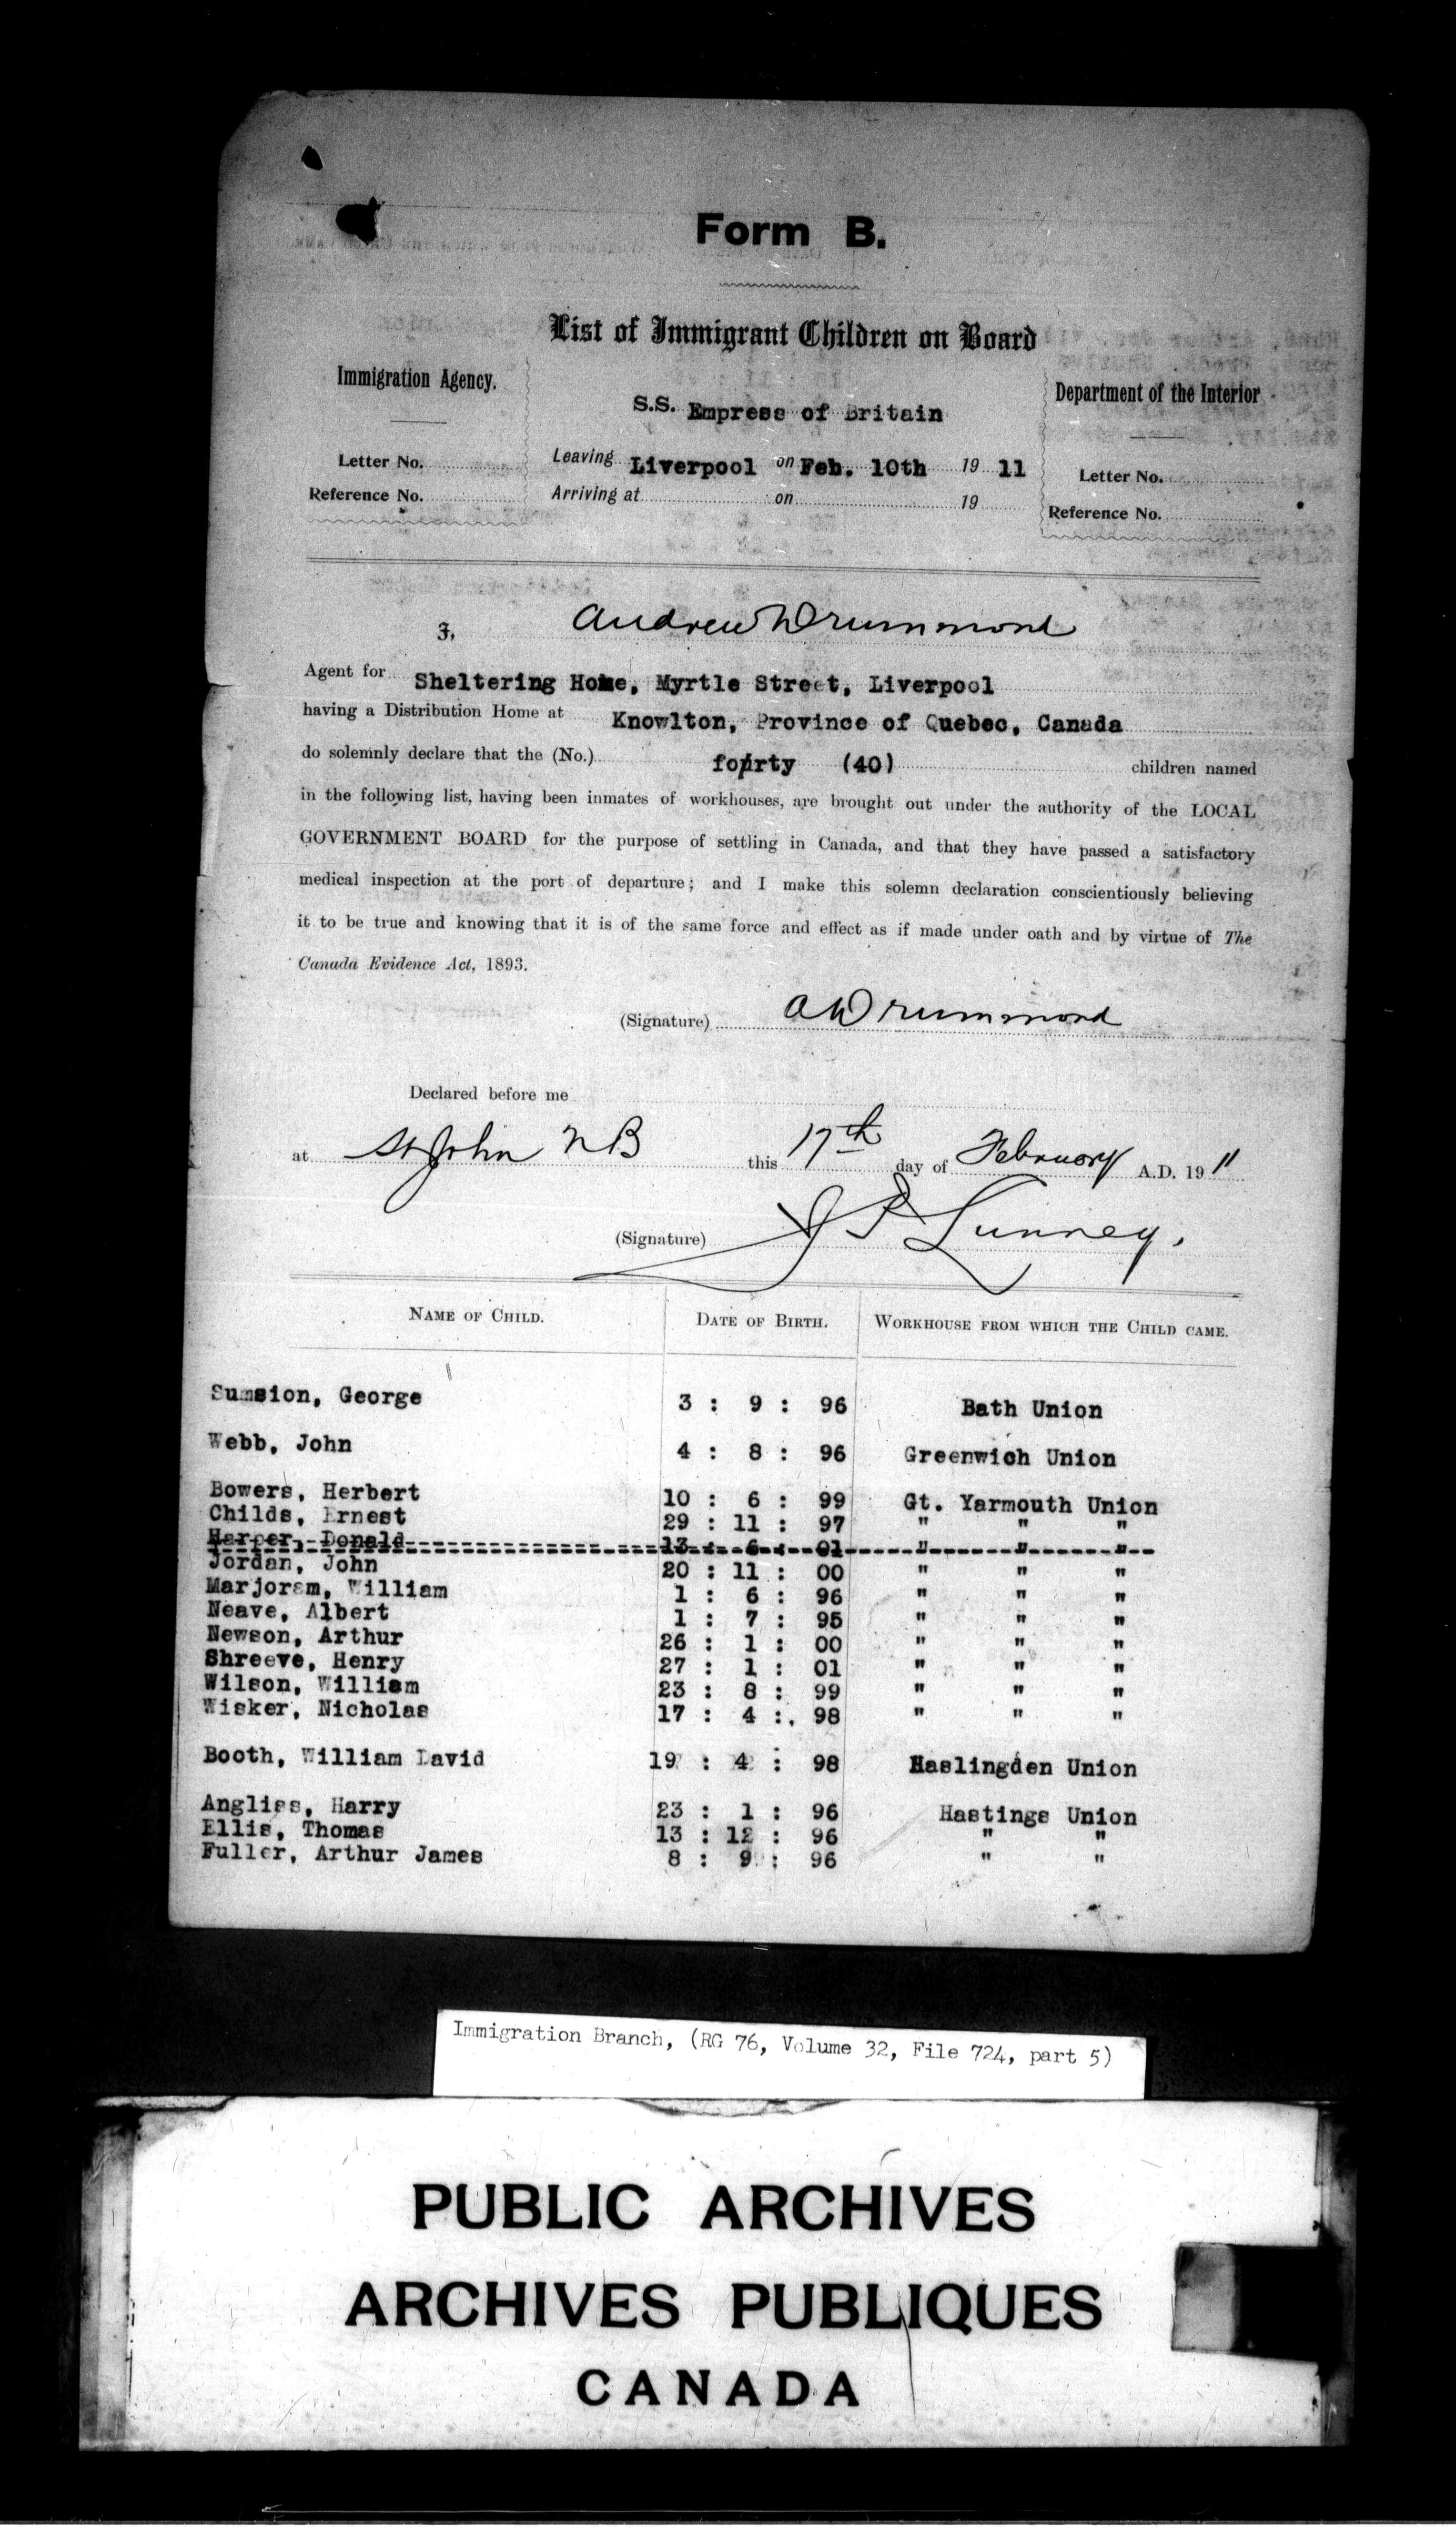 Form B.
List of Immigrant Children on Board
Immigration Agency.
Department of the Interior
S.S. Empress of Britain
Letter No.
Leaving Liverpool on Feb. 10th 19 11
Letter No.
Reference No.
Arriving at on 19
Reference No.
I, Andrew Drummond
Agent for Sheltering Home, Myrtle Street, Liverpool
having a Distribution Home at Knowlton, Province of Quebec, Canada
do solemnly declare that the (No.) forty (40) children named
in the following list, having been inmates of workhouses, are brought out under the authority of the LOCAL
GOVERNMENT BOARD for the purpose of settling in Canada, and that they have passed a satisfactory
medical inspection at the port of departure; and I make this solemn declaration conscientiously believing
it to be true and knowing that it is of the same force and effect as if made under oath and by virtue of The
Canada Evidence Act, 1893.
(Signature) A Drummond
Declared before me
at St John N B this 17th day of February A.D. 19 11
(Signature) J P Lunney.
NAME OF CHILD. DATE OF BIRTH. WORKHOUSE FROM WHICH THE CHILD CAME.
Sumsion, George 3 : 9 : 96 Bath Union
Webb, John 4 : 8 : 96 Greenwich Union
Bowers, Herbert 10 : 6 : 99 Gt. Yarmouth Union
Childs, Ernest 29 : 11 : 97 " " "
Harper, Donald 13 : 6 : 01 " " "
Jordan, John 20 : 11 : 00 " " "
Marjoram, William 1 : 6 : 96 " " "
Neave, Albert 1 : 7 : 95 " " "
Newson, Arthur 26 : 1 : 00 " " "
Shreeve, Henry 27 : 1 : 01 " " "
Wilson, William 23 : 8 : 99 " " "
Wisker, Nicholas 17 : 4 : 98 " " "
Booth, William David 19 : 4 : 98 Haslingden Union
Angliss, Harry 23 : 1 : 96 Hastings Union
Ellis, Thomas 13 : 12 : 96 " "
Fuller, Arthur James 8 : 9 : 96 " "
Immigration Branch, (RG 76, Volume 32, File 724, part 5)
PUBLIC ARCHIVES
ARCHIVES PUBLIQUES
CANADA